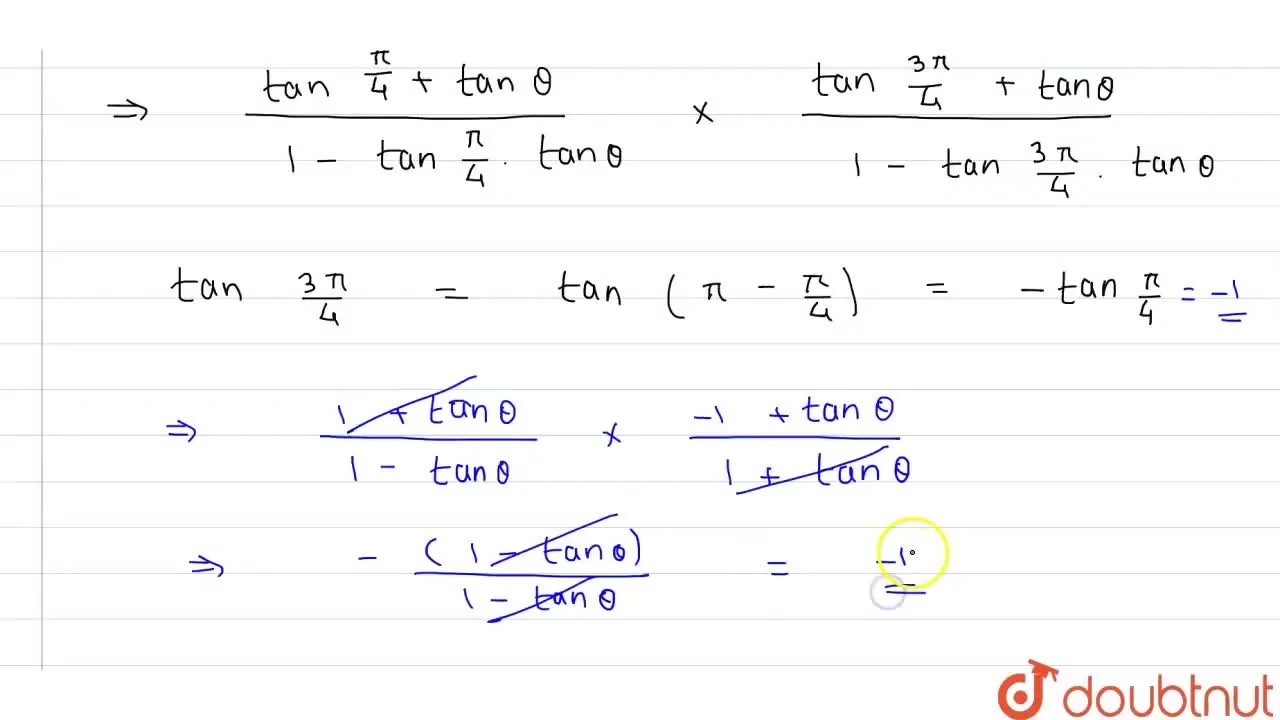 ⇒ (tan π/4 + tan θ)/(1 - tan π/4 . tan θ) × (tan 3π/4 + tan θ)/(1 - tan 3π/4 . tan θ)
tan 3π/4 = tan (π - π/4) = - tan π/4 = -1
⇒ (1 + tan θ)/(1 - tan θ) × (-1 + tan θ)/(1 + tan θ)
⇒ - (1 - tan θ)/(1 - tan θ) = -1
doubtnut